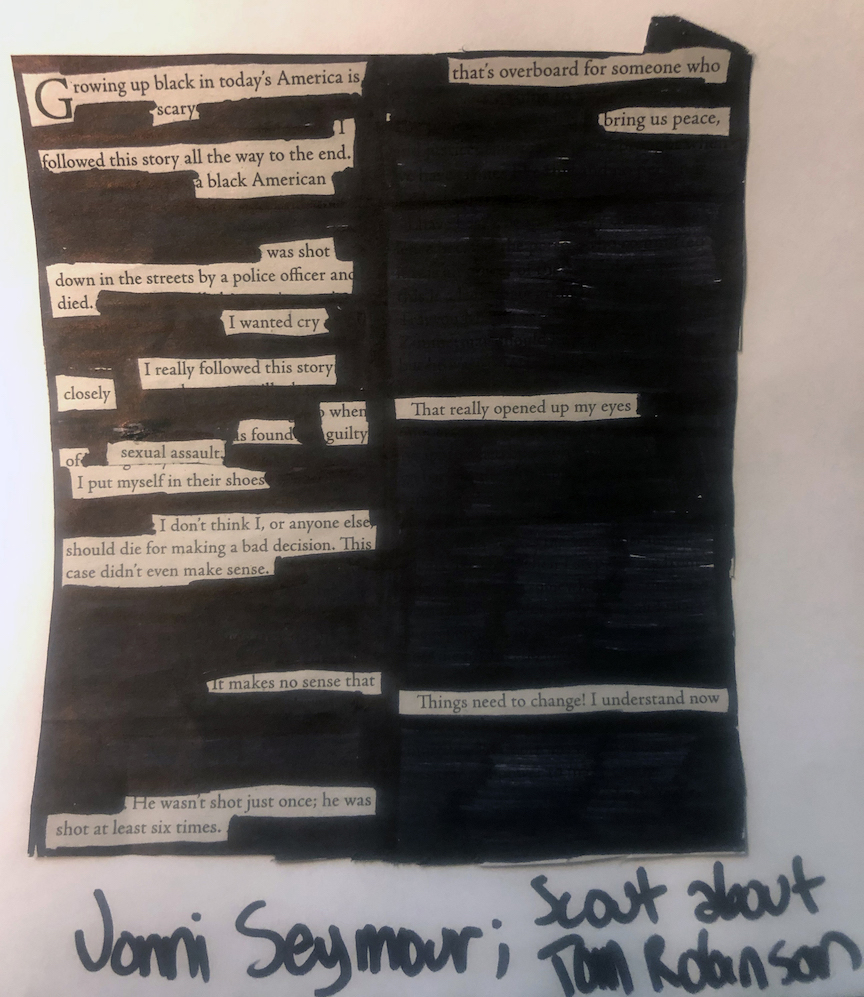 Growing up black in today's America is
scary
I
followed this story all the way to the end.
a black American
was shot
down in the streets by a police officer and
died.
I wanted cry
I really followed this story
closely
when
is found guilty
of sexual assault.
I put myself in their shoes
I don't think I, or anyone else,
should die for making a bad decision. This
case didn't even make sense.
It makes no sense that
He wasn't shot just once; he was
shot at least six times.
that's overboard for someone who
bring us peace,
That really opened up my eyes
Things need to change! I understand now
Jonni Seymour; Scout about
Tom Robinson